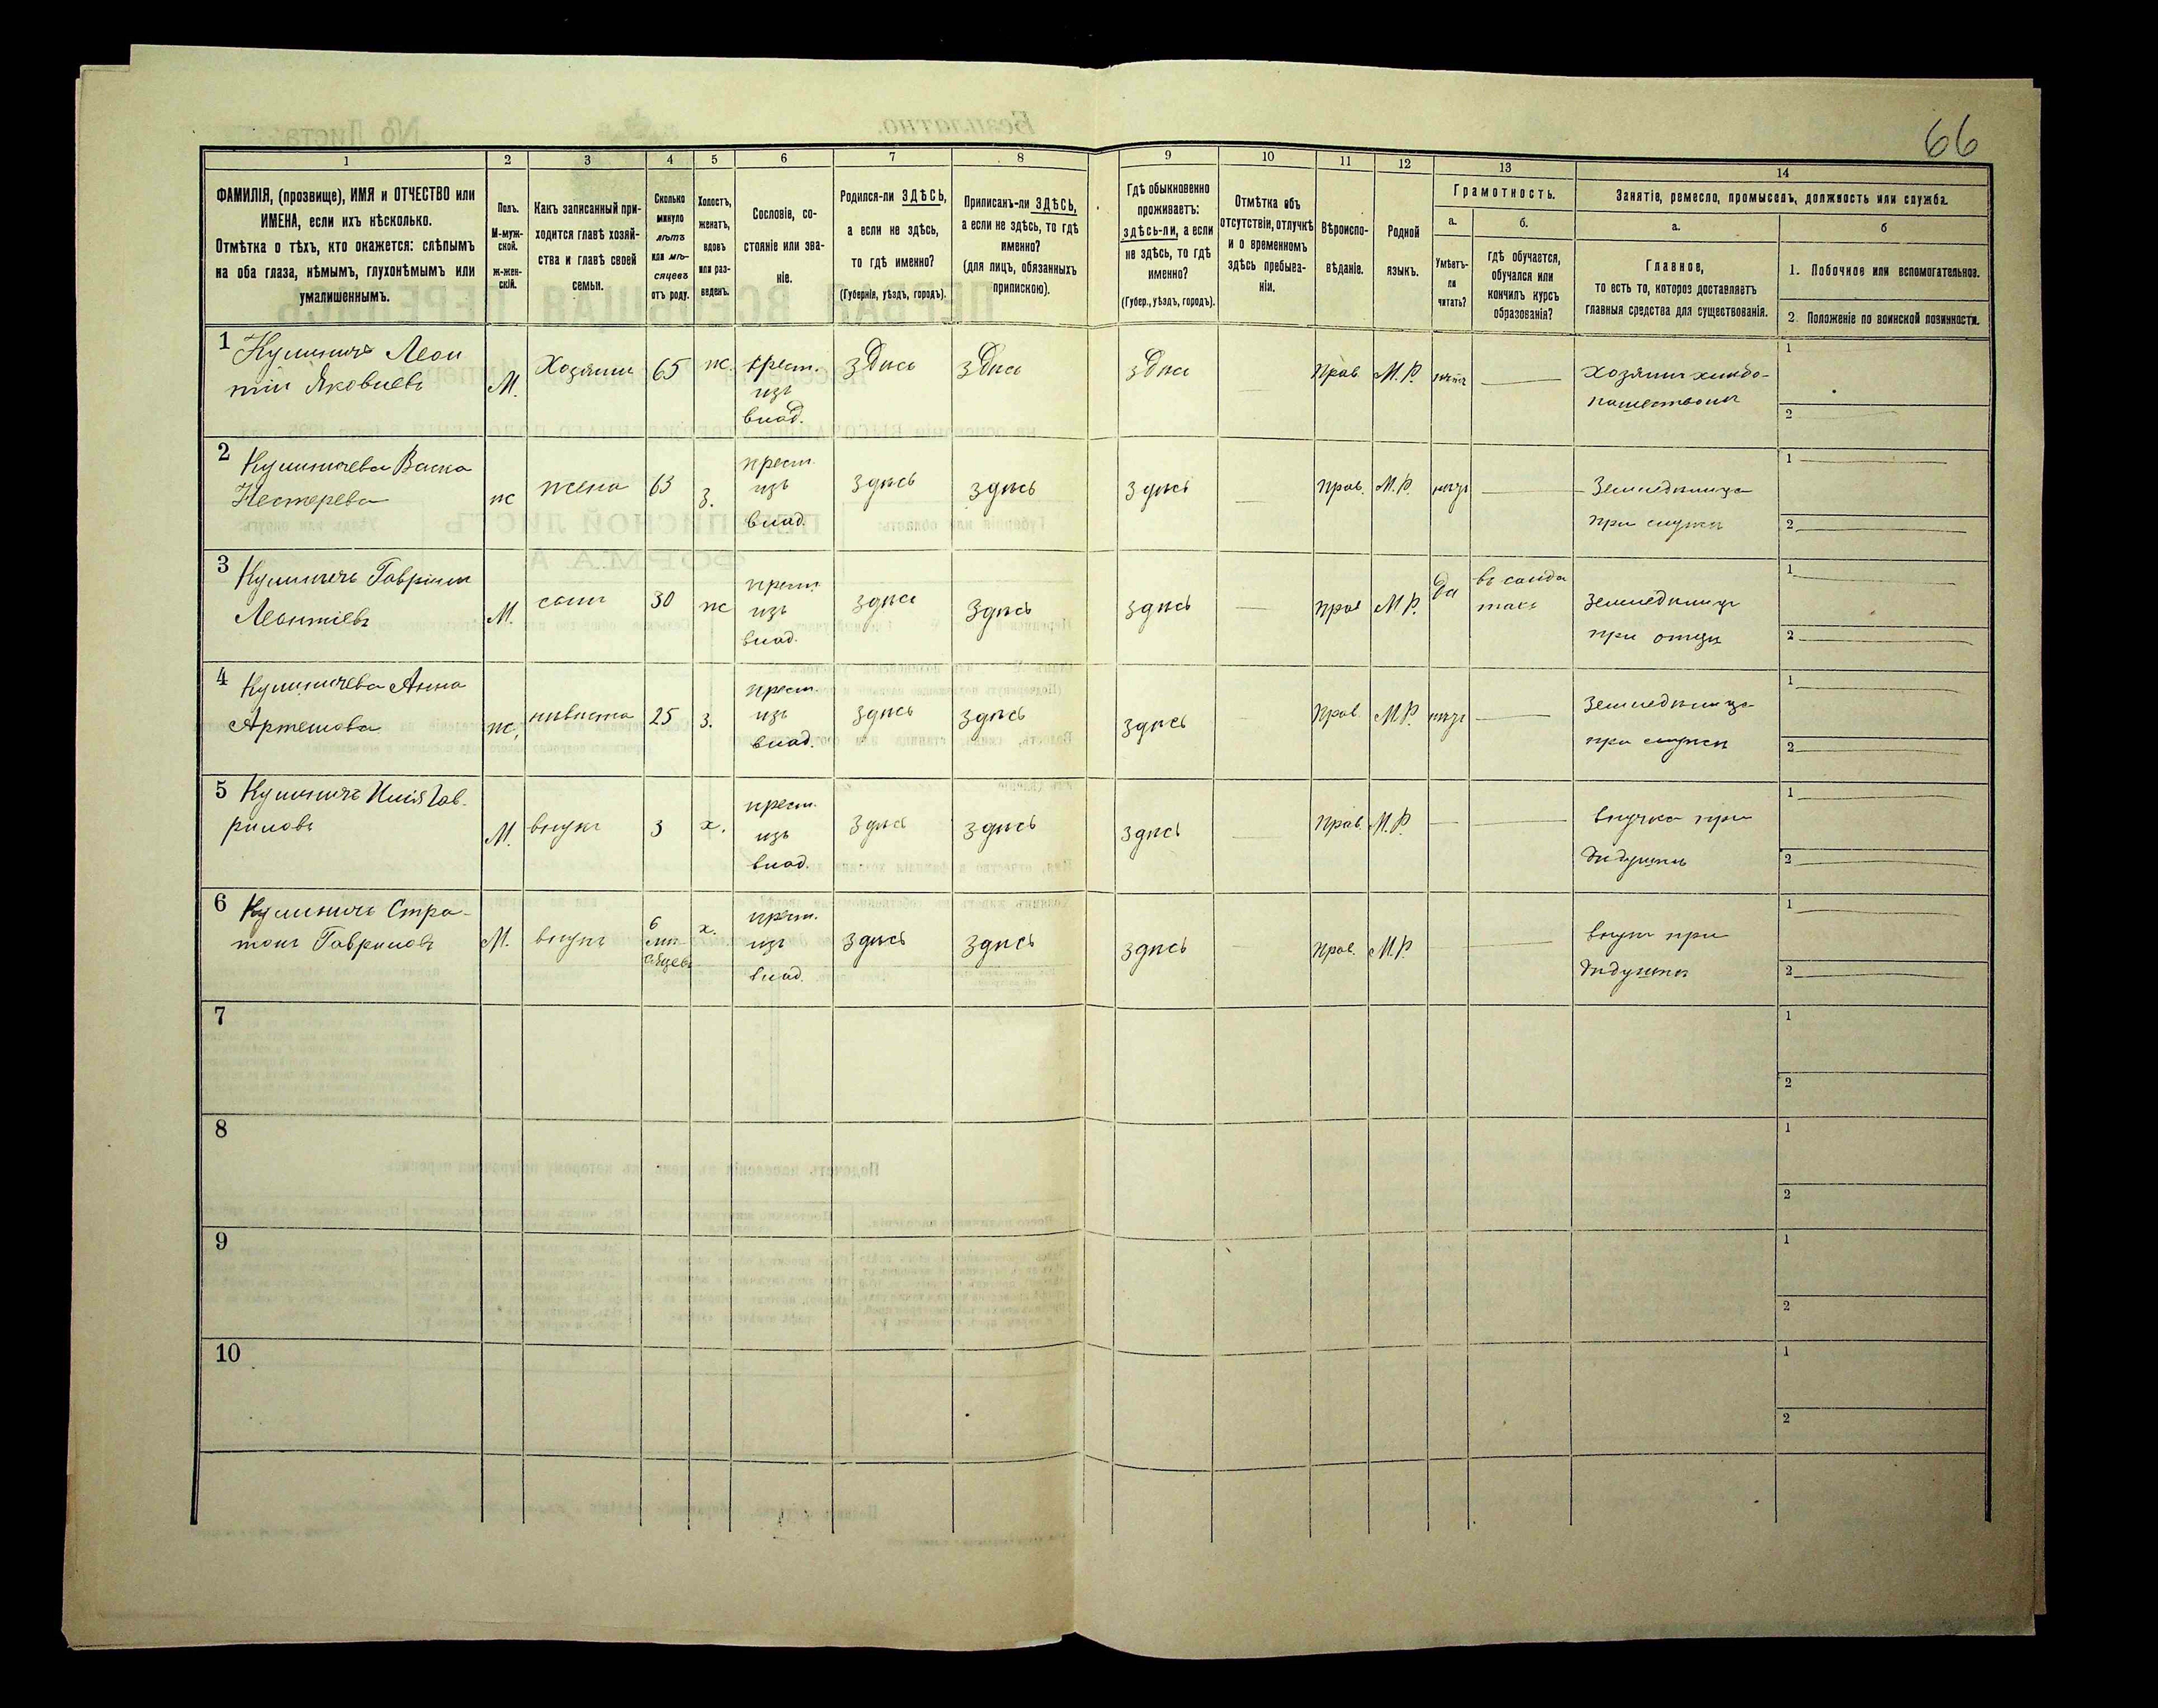 66
1 2 3 4 5 6 7 8 9 10 11 12 13 14
ФАМИЛІЯ, (прозвище), ИМЯ и ОТЧЕСТВО или
ИМЕНА, если ихъ нѣсколько.
Отмѣтка о тѣхъ, кто окажется: слѣпымъ
на оба глаза, нѣмымъ, глухонѣмымъ или
умалишеннымъ.
Полъ.
М-муж-
ской.
Ж-жен-
скій.
Какъ записанный при-
ходится главѣ хозяй-
ства и главѣ своей
семьи.
Сколько
минуло
лѣтъ
или мѣ-
сяцевъ
отъ роду.
Холостъ,
женатъ,
вдовъ
или раз-
веденъ.
Сословіе, со-
стояніе или зва-
ніе.
Родился-ли ЗДѢСЬ,
а если не здѣсь,
то гдѣ именно?
(Губернія, уѣздъ, городъ).
Приписанъ-ли ЗДѢСЬ,
а если не здѣсь, то гдѣ
именно?
(для лицъ, обязанныхъ
припискою).
Гдѣ обыкновенно
проживаетъ:
здѣсь-ли, а если
не здѣсь, то гдѣ
именно?
(Губер., уѣздъ, городъ).
Отмѣтка объ
отсутствіи, отлучкѣ
и о временномъ
здѣсь пребыва-
ніи.
Вѣроиспо-
вѣданіе.
Родной
языкъ.
Грамотность.
а.
Умѣетъ-
ли
читать?
б.
гдѣ обучается,
обучался или
кончилъ курсъ
образованія?
Занятіе, ремесло, промыселъ, должность или служба.
а.
Главное,
то есть то, которое доставляетъ
главныя средства для существованія.
б
1. Побочное или вспомогательное.
2. Положеніе по воинской повинности.
1 Кулиничъ Леон
тій Яковлевъ
М. Хозяинъ 65 ж. крест.
изъ
влад.
здѣсь здѣсь здѣсь Прав. М.Р. нѣтъ
хозяинъ хлѣбо-
пашествомъ
1
2
2 Кулиничева Васса
Нестерева
ж жена 63 з. крест.
изъ
влад.
здѣсь здѣсь здѣсь Прав. М.Р.
Земледѣлица
при мужѣ
1
2
3 Кулиничъ Гавріилъ
Леонтіевъ
М. сынъ 30 ж крест.
изъ
влад.
здѣсь здѣсь здѣсь Прав М.Р. да въ солда
тахъ
земледѣлецъ
при отцѣ
1
2
4 Кулиничева Анна
Артемова
ж. нивѣста 25 з. крест.
изъ
влад.
здѣсь здѣсь здѣсь Прав. М.Р.
земледѣлица
при мужѣ
1
2
5 Кулиничъ Илія Гав.
риловъ
М. внукъ 3 х. крест.
изъ
влад.
здѣсь здѣсь здѣсь Прав. М.Р.
внучка при
дѣдушкѣ
1
2
6 Кулиничъ Стра-
тонъ Гавриловъ
М. внукъ 6
мѣ-
сяцевъ
х. крест.
изъ
влад.
здѣсь здѣсь здѣсь Прав. М.Р.
внукъ при
дѣдушкѣ
1
2
7
1
2
8
1
2
9
1
2
10
1
2